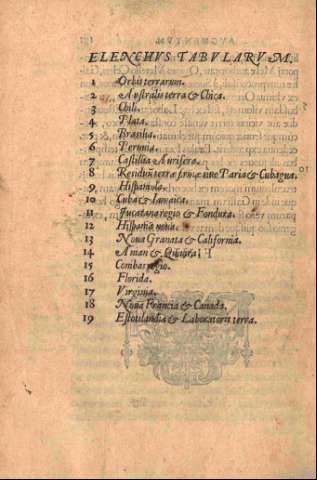 ELENCHVS TABVLARVM.
1 Orbis terrarum.
2 Australis terra & Chica.
3 Chili.
4 Plata.
5 Brasilia.
6 Peruuia.
7 Castilia Aurifera.
8 Residuũ terræ siue Paria & Cubagua.
9 Hispaniola.
10 Cuba & Iamaica.
11 Iucatana regio & Fondura.
12 Hispania noua.
13 Noua Granata & California.
14 Anian & Quiuira
15 Conibas regio.
16 Florida.
17 Virginia.
18 Noua Francia & Canada.
19 Estotilandia & Laboratoris terra.